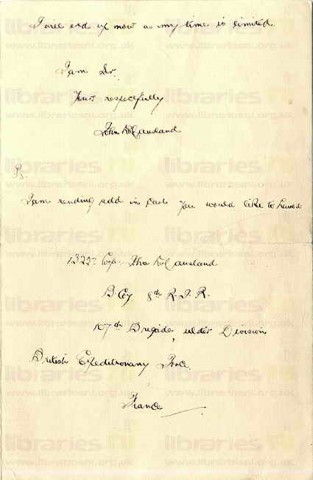 I will end up now as my time is limited.
I am Sr.
Your respectfully
John
PS
I am sending add in case you would like to have it
Cpl. Jhn
B Coy 8th R. I. R.
107th Brigade, Division
British Expeditionary Force
France
libraries ni
www.librariesni.org.uk